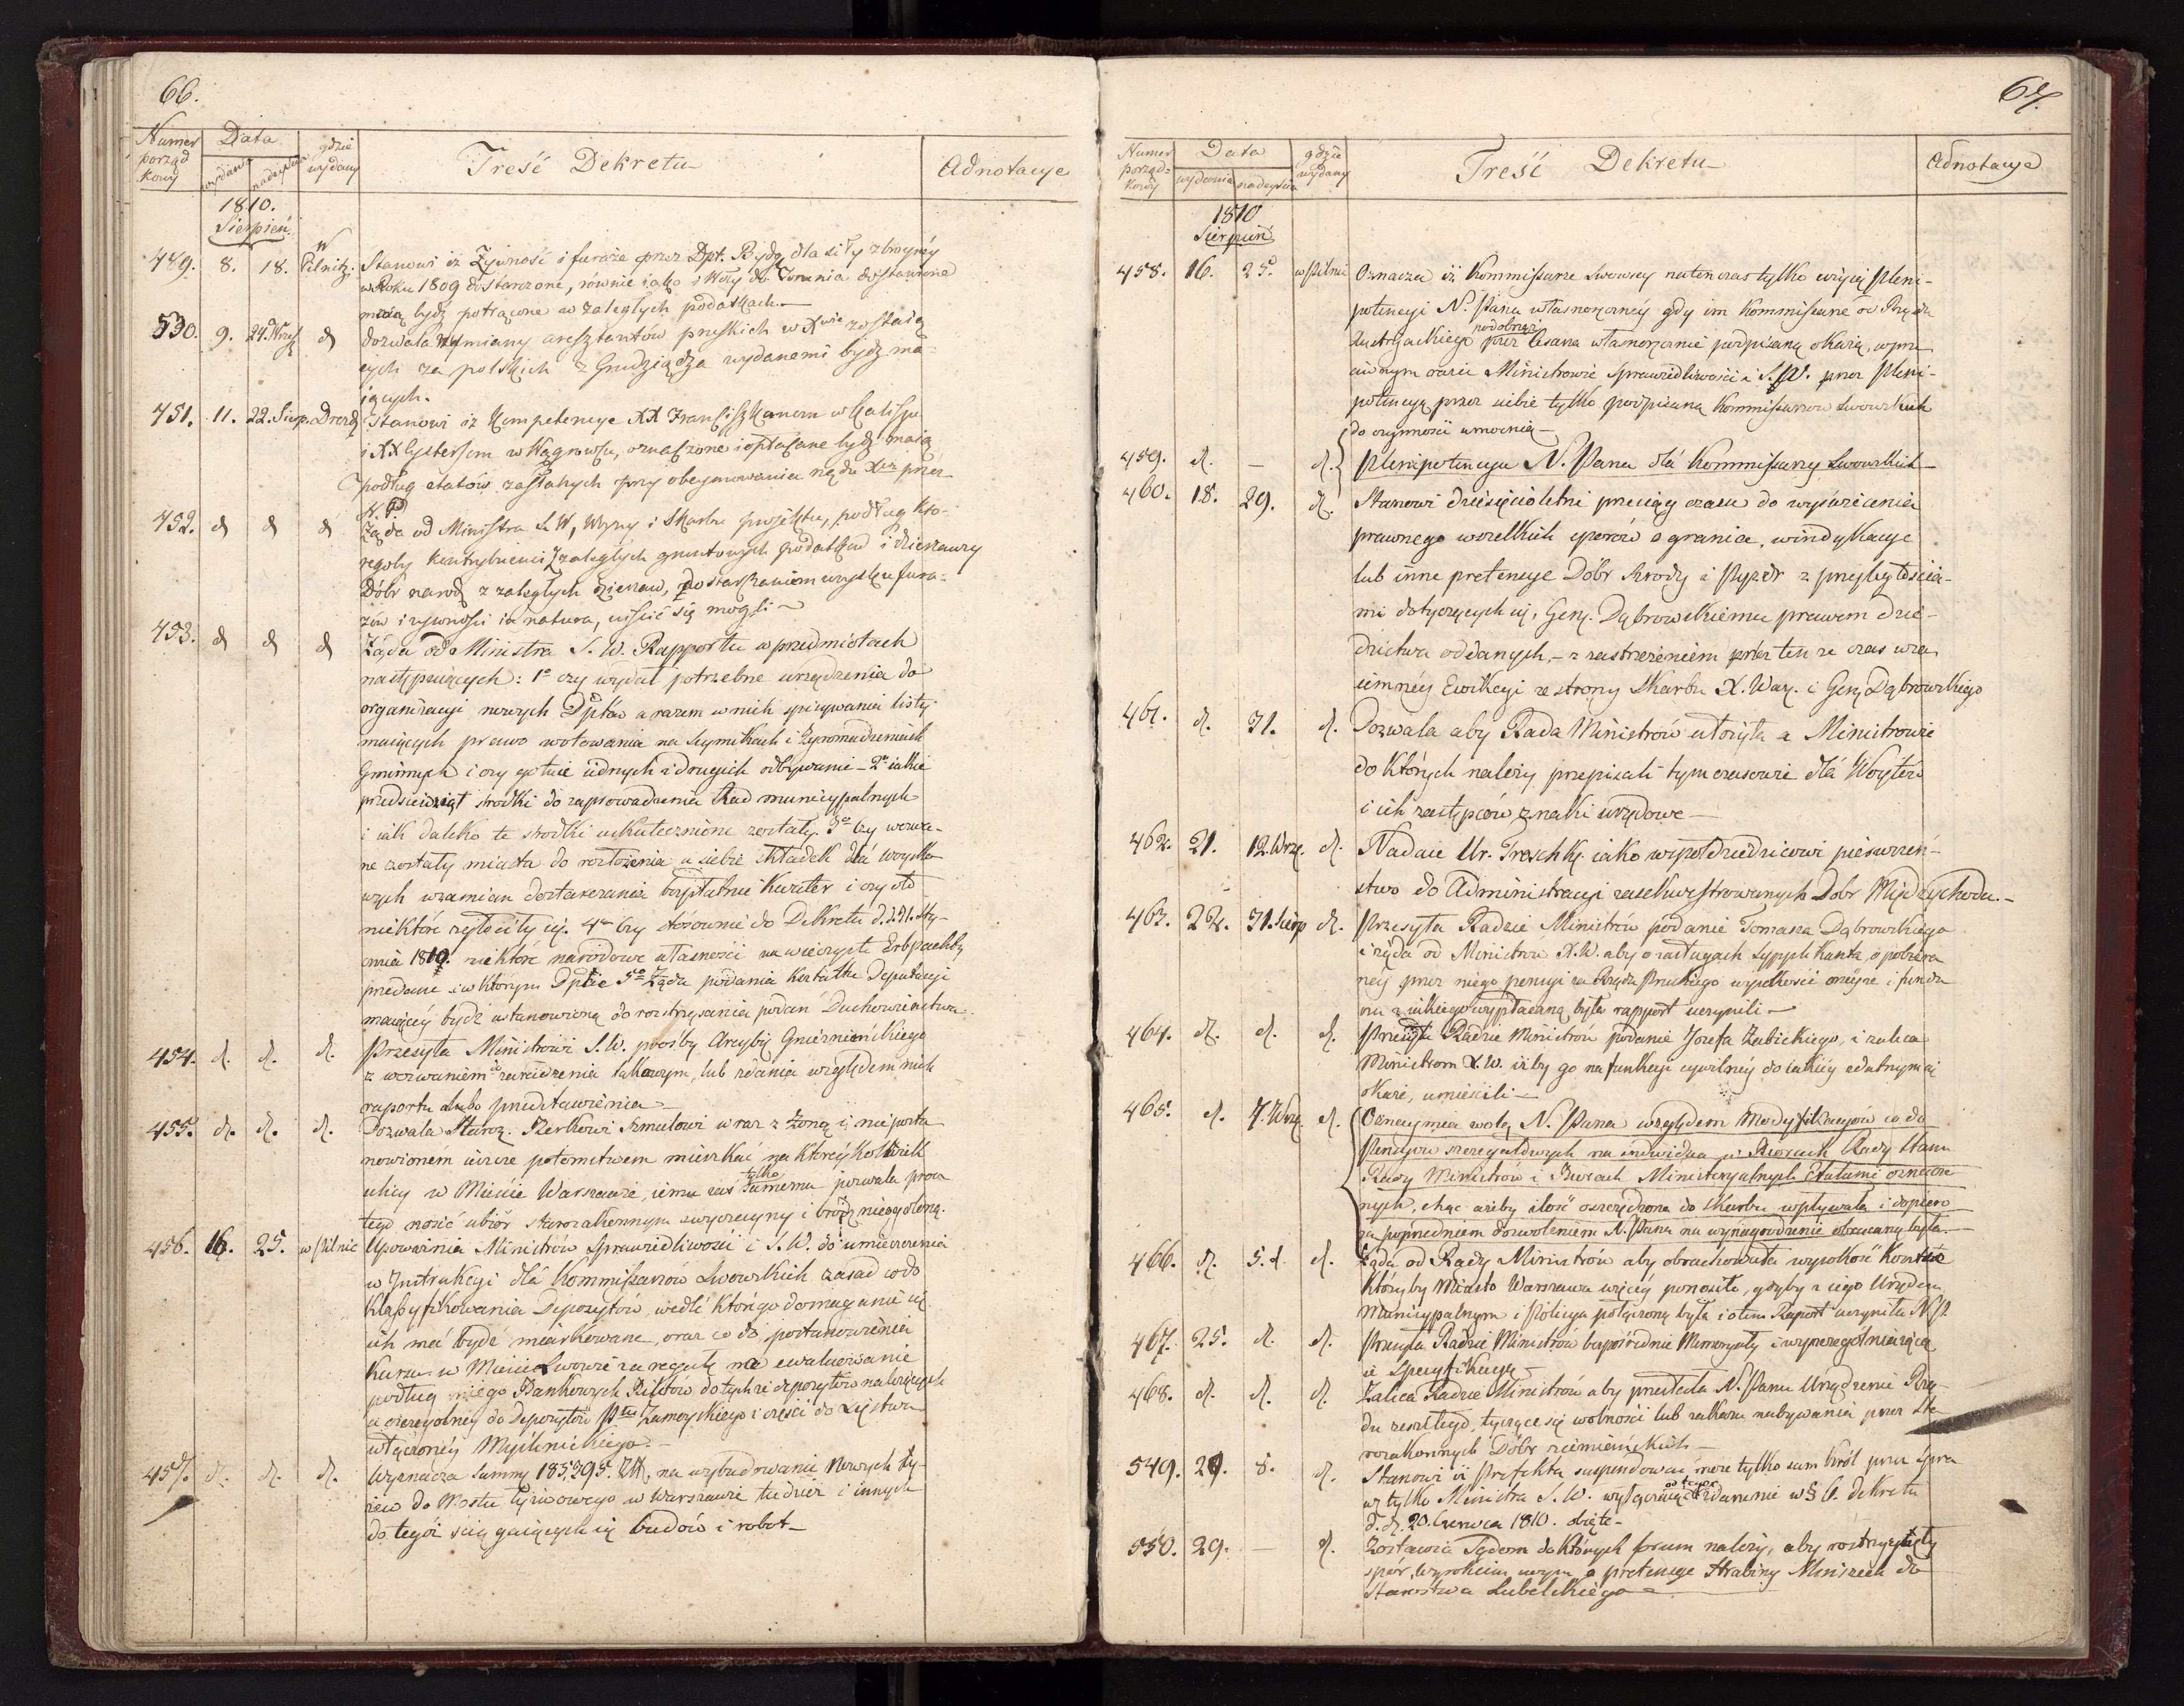 66.
Numer porząd kowy
Data
wydania
nadejścia
gdzie wydany
Treść Dekretu
Adnotacye
1810.
Sierpień.
449. 8. 18. w Pilnitz. Stanowi iż Żywność i furaże przez Dpt. Bydg. dla siły zbroyney
w Roku 1809 dostarczone, równie iako i Woły do Torunia dostawione
maią bydź potrącone w zaległych podatkach.—
530. 9. 24. Wrześ. d dozwala wymiany aresztantów pruskich w Xwie zostaią
cych za polskich z Grudziądza wydanemi bydź ma-
iących.
451. 11. 22. Sierp. Drezd. Stanowi iż kompetencye XX Franciszkanom w Kaliszu
i XX Cystersom w Wągrowcu, oznaczone i opłacane bydź maią
podług etatów zaszłych przy obeymowaniu rządu Xa przez
N. P.
452. d d d Żąda od Ministra S. W, Woyny i Skarbu projektu, podług któ-
regoby kontrybuenci z zaległych gruntowych podatków i dzierżawcy
Dóbr narod. z zaległych dzierżaw, dostarczaniem wszystkiego fura-
żów i żywności in natura, uiścić się mogli —
453. d d d Żąda od Ministra S. W. Rapportu w przedmiotach
następuiących: 1o czy wydał potrzebne urządzenia do
organizacyi nowych Dptów a razem w nich spisywania listy
maiących prawo wotowania na Seymikach i Zgromadzeniach
Gminnych i czy gotuie iednych i drugich odbywanie — 2o iakie
przedsięwziął środki do zaprowadzenia Rad municypalnych
i iak daleko te środki uskutecznione zostały. 3o Czy wezwa-
ne zostały miasta do rozłożenia u siebie składek dla woysko-
wych wzamian dostarczania bezpłatnie kwater i czy się
niektóre zgłosiły iuż. 4o Czy stósownie do Dekretu d. d. 31. Sty-
cznia 1810. niektóre narodowe własności na wieczyste Erbpachty
przedane i w którym Dptcie 5o Żąda podania kształtu Deputacyi
maiącey bydź ustanowioną do roztrząsania podań Duchowieństwa.
454. d. d. d. Przesyła Ministrowi S. W. prośby Arcybis. Gnieznieńskiego
z wezwaniem do zaradzenia takowym, lub zdania względem nich
raportu lubo przedstawienia —
455. d. d. d. Dozwala Staroz. Berkowi Szmulowi wraz z żoną i nieposta
nowionem ieszcze potomstwem mieszkać na któreykolwiek
ulicy w Mieście Warszawie, iemu zaś samemu tylko pozwala procz
tego nosić ubiór starozakonnym zwyczayny i brodę nieogoloną.
456. 16. 25. w Pilnic Upoważnia Ministrów Sprawiedliwości i S. W. do umieszczenia
w Instrukcyi dla Kommissarzów Lwowskich zasad co do
klassyfikowania Depozytów, wedle którego domaganie się
ich ma bydź miarkowane, oraz co do postanowienia
kursu w Mieście Lwowie za regułę na ewaluowanie
podług niego Bankowych Biletów do tychże depozytów należących
a szczególniey do Depozytów Pttu Zamoyskiego i części do Xięstwa
włączoney Myślenickiego.—
457. d. d. d. Wyznacza Summę 185,395. Złł. na wybudowanie nowych ły-
żew do Mostu łyżwowego w Warszawie tudzież i innych
do tegóż ściągaiących się budów i robot—
67.
Numer porząd- kowy
Data
wydania
nadeyścia
gdzie wydany
Treść Dekretu
Adnotacye
1810
Sierpień
458. 16. 25. w Pilnic Oznacza iż Kommissarze Lwowscy natenczas tylko użyią Pleni-
potencyi N. Pana własnoręczney gdy im Kommissarze od Rządu
Austryackiego podobnąż przez Cesarza własnoręcznie podpisaną okażą, w prze
ciwnym razie Ministrowie Sprawiedliwości i S. W. przez Pleni-
potencyą przez siebie tylko podpisaną Kommissarzów Lwowskich
do czynności umocnią—
459. d. — d. Plenipotencya N. Pana dla Kommissarzy Lwowskich—
460. 18. 29. d. Stanowi dziesięcioletni przeciąg czasu do wyświecenia
prawnego wszelkich sporów o granice, windykacye
lub inne pretensye Dóbr Środy i Pyzdr z przyległościa-
mi dotyczących się, Gen. Dąbrowskiemu prawem dzie-
dzictwa oddanych,— z zastrzeżeniem przez ten że czas wza
iemnéy Ewikcyi ze strony Skarbu X. War. i Gen. Dąbrowskiego
461. d. 31. d. Dozwala aby Rada Ministrów ułożyła a Ministrowie
do których należy przepisali tymczasowie dla Woytów
i ich zastępców znaki urzędowe—
462. 21. 12. Wrz. d. Nadaie Ur. Treschk. iako współdziedzicowi pierwszeń-
stwo do Administracyi zasekwestrowanych Dobr Międzychodu.—
463. 22. 31. Sierp d. Przesyła Radzie Ministrów podanie Tomasza Dąbrowskiego
i żąda od Ministrów X. W. aby o zasługach Supplikanta, o pobiera
ney przez niego pensyi za Rządu Pruskiego wysokości oneyże i fundu
szu z iakiego wypłacaną była rapport uczynili—
464. d. d. d. Przesyła Radzie Ministrów podanie Jozefa Zabickiego, i zaleca
Ministrom X. W. iżby go na funkcyi cywilney do iakiey zdatnym się
okaże, umieścili—
465. d. 7. Wrz. d. Oznaymia wolę N. Pana względem Modyfikacyów co do
Pensyów szczegułowych na indwidua w Biorach Rady Stanu
Rady Ministrów i Biorach Ministeryalnych Etatami oznaczo
nych, chcąc ażeby ilość oszczędzona do Skarbu wpływała i dopiero
za poprzedniem dozwoleniem N. Pana na wynagrodzenie obracaną była.—
466. d. 5. d. d. Żąda od Rady Ministrów aby obrachowała wysokość Kosztów
któreby Miasto Warszawa więcey ponosiło, gdyby z iego Urzędem
Municypalnym i Policya połączoną była i o tem Raport uczyniła N. P.
467. 25. d. d. Przesyła Radzie Ministrów bezpośrednie Memoryały i wyszczególniaiącą
ie Specyfikacyą—
468. d. d. d. Zaleca Radzie Ministrów aby przesłała N. Panu Urządzenie Rzą-
du zeszłego, tyczące się wolności lub zakazu nabywania przez Sta
rozakonnych Dóbr ziemiańskich—
549. 29. 8. d. Stanowi iż Prefekta suspendować może tylko sam Król przez Spra
wę tylko Ministra S. W. wyłączaiąc od tego zdarzenie w § 6. dekretu
d. d. 20. Czerwca 1810. obięte—
550. 29. — d. Zostawia Sądom do których forum należy, aby rozstrzygnęły
spór, wyrokiem swym o pretensye Hrabiny Mniszech do
Starostwa Lubelskiego—